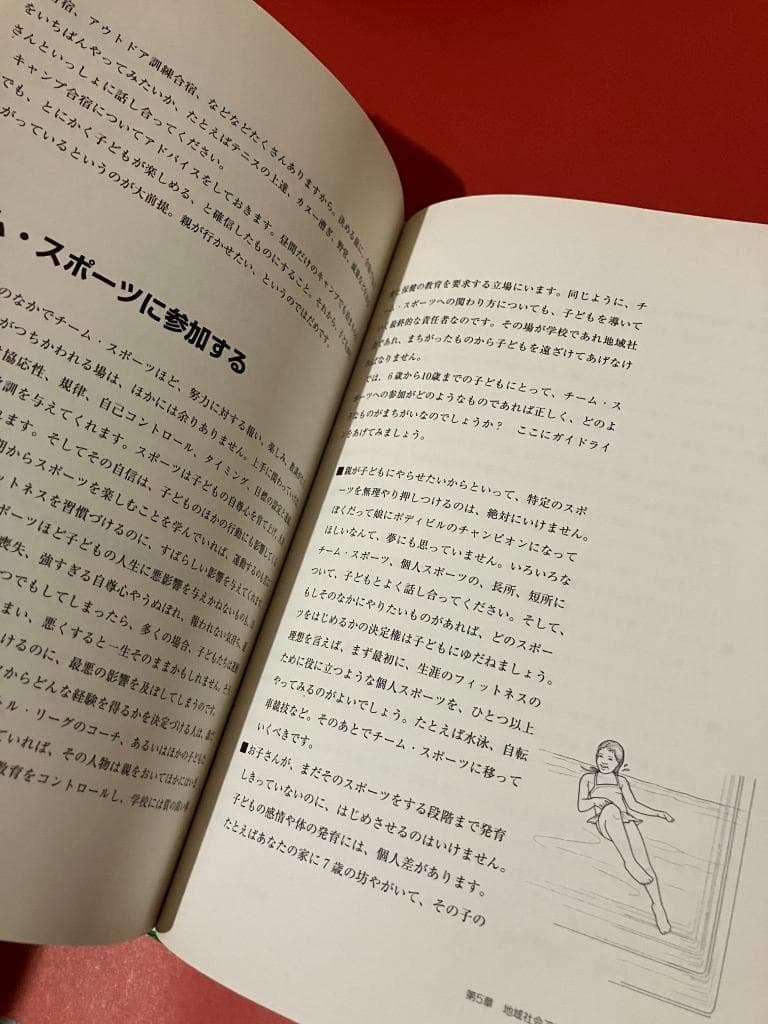 合宿、アウトドア訓練合宿、などなどたくさんありますから。決める前に、
をいちばんやってみたいか、たとえばテニスの上達、カヌー漕ぎ、野営、
さんといっしょに話し合ってください。
キャンプ合宿についてアドバイスをしておきます。昼間だけのキャンプでも
でも、とにかく子どもが楽しめる、と確信したものにすること。それから、子ども
がっているというのが大前提。親が行かせたい、というのではだめです。
ム・スポーツに参加する
のなかでチーム・スポーツほど、努力に対する報い、楽しみ、
がつちかわれる場は、ほかには余りありません。上手に関わっていけば、
協応性、規律、自己コントロール、タイミング、目標の設定と
訓を与えてくれます。スポーツは子どもの自尊心を育て上げ、
れます。そしてその自信は、子どものほかの行動にも影響して
期からスポーツを楽しむことを学んでいれば、運動するのも
ットネスを習慣づけるのに、すばらしい影響を与えてくれます
ポーツほど子どもの人生に悪影響を与えかねないものも、
喪失、強すぎる自尊心やうぬぼれ、報われない気持ち、
つでもしてしまったら、多くの場合、子どもたちは
まい、悪くすると一生そのままかもしれません。
けるのに、最悪の影響を及ぼしてしまうのです。
からどんな経験を得るかを決定づける人は、
トル・リーグのコーチ、あるいはほかの子ども
ていれば、その人物は親をおいてほかにはいま
教育をコントロールし、学校には質の高い
保健の教育を要求する立場にいます。同じように、チ
ム・スポーツへの関わり方についても、子どもを導いて
最終的な責任者なのです。その場が学校であれ地域社
であれ、まちがったものから子どもを遠ざけてあげなけ
ばなりません。
では、6歳から10歳までの子どもにとって、チーム・ス
ポーツへの参加がどのようなものであれば正しく、どのよ
うなものがまちがいなのでしょうか? ここにガイドライ
ンをあげてみましょう。
■親が子どもにやらせたいからといって、特定のスポ
ーツを無理やり押しつけるのは、絶対にいけません。
ぼくだって娘にボディビルのチャンピオンになって
ほしいなんて、夢にも思っていません。いろいろな
チーム・スポーツ、個人スポーツの、長所、短所に
ついて、子どもとよく話し合ってください。そして、
もしそのなかにやりたいものがあれば、どのスポー
ツをはじめるかの決定権は子どもにゆだねましょう。
理想を言えば、まず最初に、生涯のフィットネスの
ために役に立つような個人スポーツを、ひとつ以上
やってみるのがよいでしょう。たとえば水泳、自転
車競技など。そのあとでチーム・スポーツに移って
いくべきです。
■お子さんが、まだそのスポーツをする段階まで発育
しきっていないのに、はじめさせるのはいけません。
子どもの感情や体の発育には、個人差があります。
たとえばあなたの家に7歳の坊やがいて、その子の
第5章 地域社会で